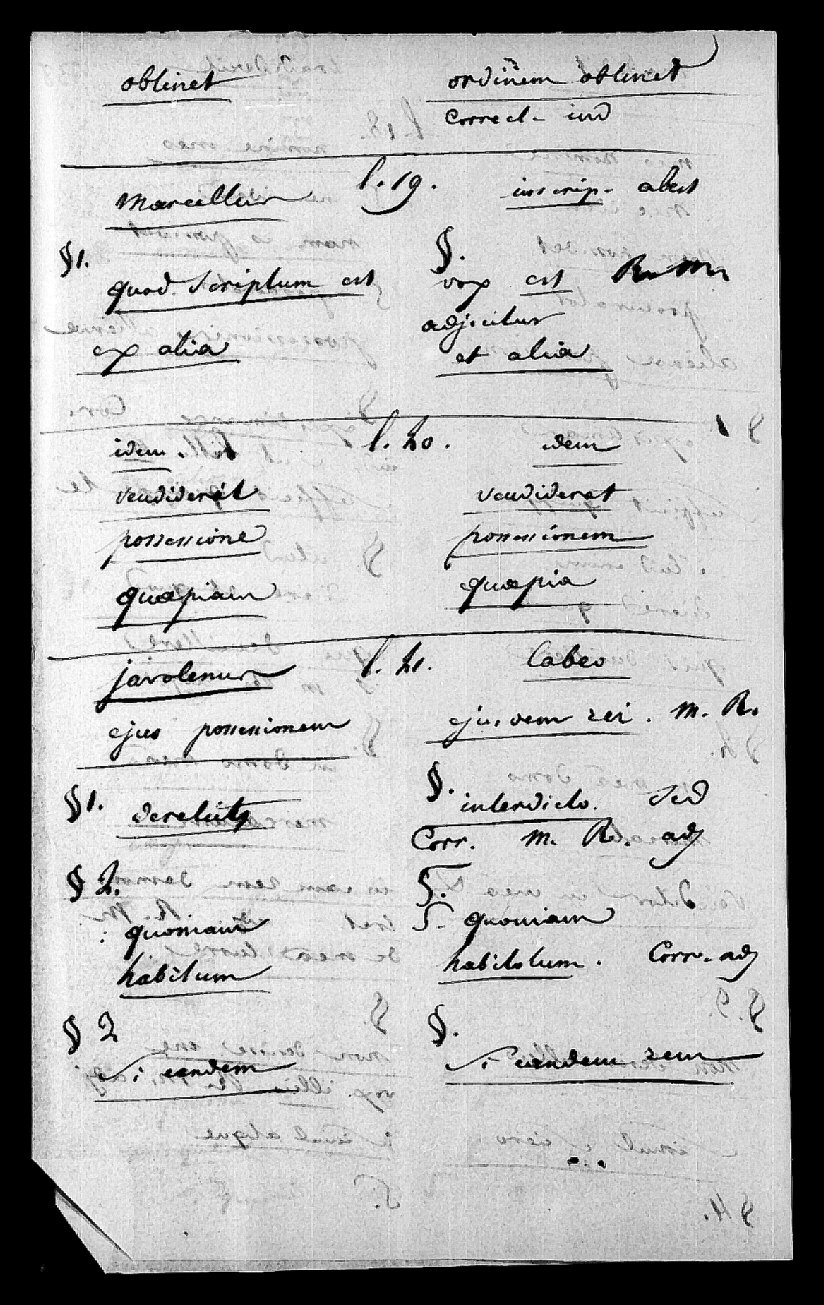 obtinet ordinem obtinet
Correct. ind
l. 19.
Marcellus inscrip. abest
§1. §.
quod scriptum est vox est R. m.
adjicitur
ex alia et alia
l. 20.
idem idem
vendiderit vendiderat
possessione possessionem
quæpiam quæpia
l. 21.
javolenus Labeo
ejus possessionem ejusdem rei. m. R.
§1. §.
interdicto. Sed
Corr. m. R. adj
§ 2. §.
quoniam S. quoniam
habitum habitotum. Corr. adj
§ 2 §.
si eandem si eandem rem